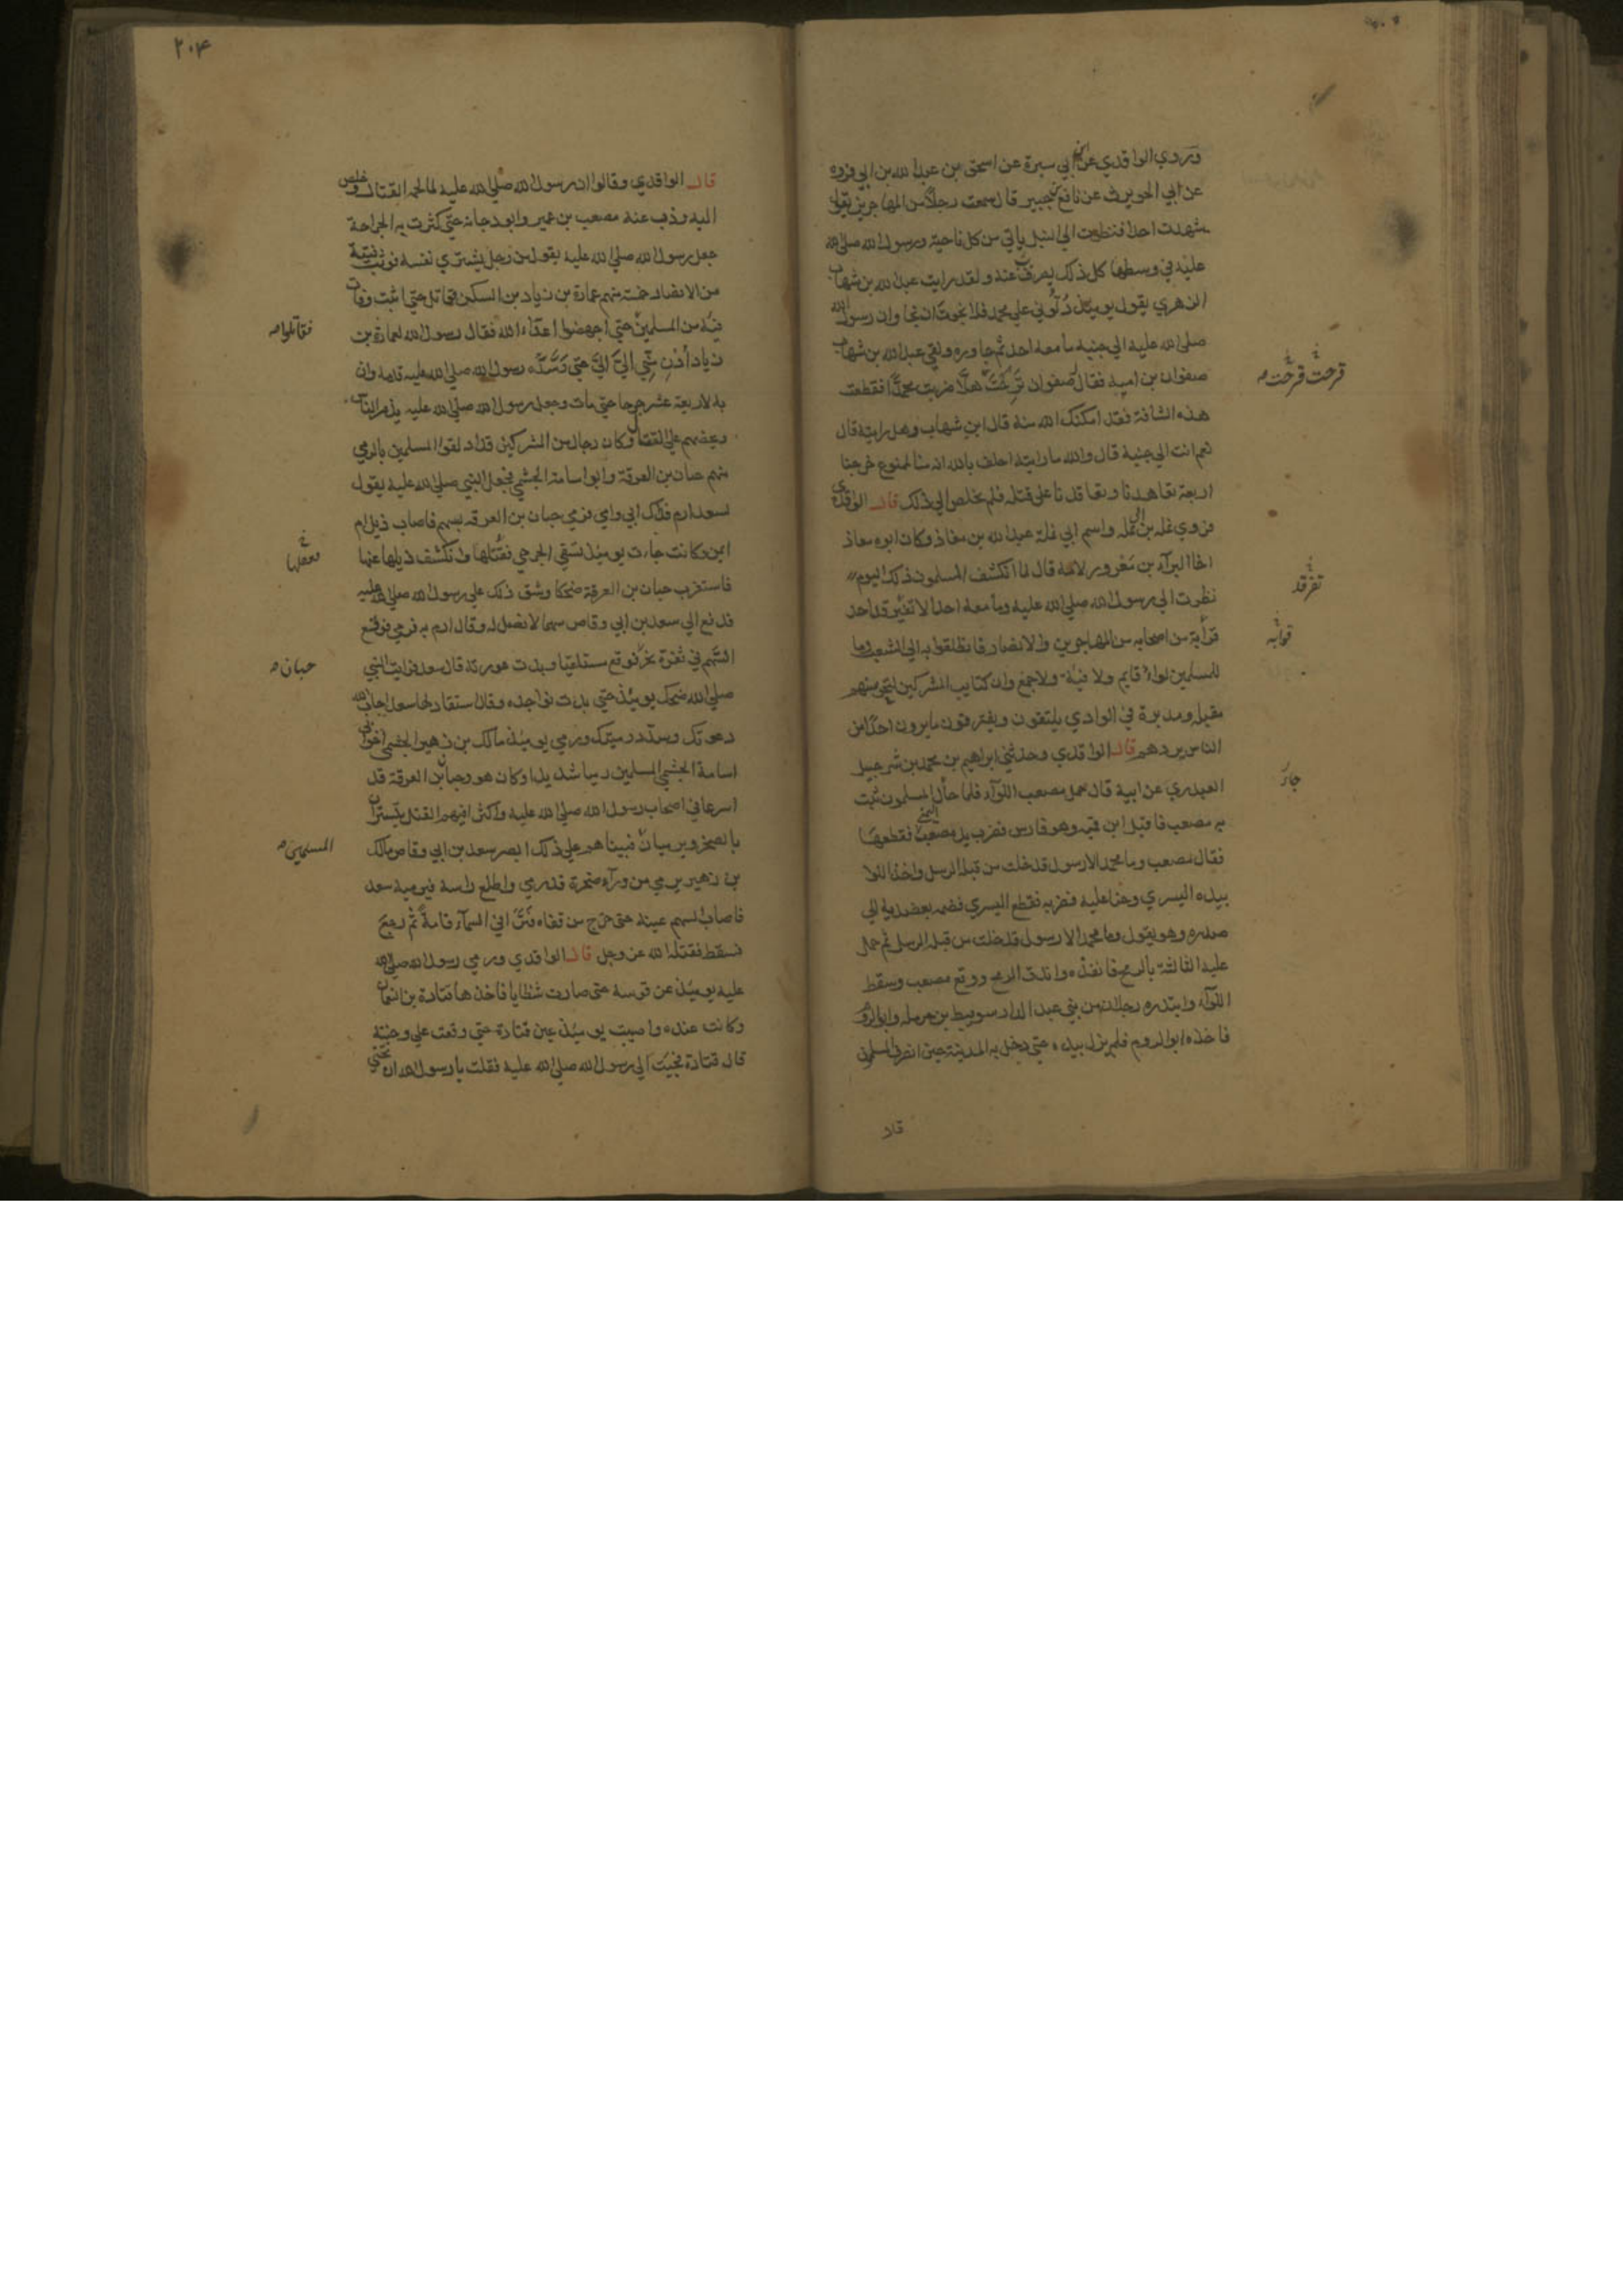 وروي الواقدي عن ابن أبي سبرة عن اسحق بن عبد الله بن ابي فروه
عن ابي الحويرث عن نافع بن جبير قال سمعت رجلاً من المهاجرين يقول
شهدت احدا فنظرت الي النبل ياتي من كل ناحية ورسول الله صلى الله
عليه في وسطها كل ذلك يصرف عنه ولقد رايت عبد الله بن شهاب
الزهري يقول يوميئذ دُلّوني علي محمد فلا نجوت ان نجا وان رسول الله
صلى الله عليه الي جنبه ما معه احد ثم جاوره ولقي عبد الله بن شهاب
صفوان بن امية فقال صفوان تَرِحْتَ هلّا ضربت محمدًا فقطعت
هذه الشافة فقد امكنك الله منه قال ابن شهاب وهل رايته قال
نعم انت الي جنبه قال والله ما رايته احلف بالله انه منا لممنوع خرجنا
اربعة تعاهدنا وتعاقدنا على قتله فلم نخلص الي ذلك قال الواقدي
فروي نملة بن ابي نملة واسم ابي نملة عبد الله بن معاذ وكان ابوه معاذ
اخا البرآء بن مَعْرور لامه قال لما انكشف المسلمون ذلك اليوم
نظرت الي رسول الله صلى الله عليه وما معه احد الا نفير قد احد
قوابه من اصحابه من المهاجرين والانصار فانطلقوا به الي الشعب وما
للمسلمين لواء قايم ولا فيه ولا جمع وان كتايب المشركين لتحوسهم
مقبلة ومدبرة في الوادي يلتقون ويفترقون ما يرون احدًا من
الناس يردهم قال الواقدي وحدثني ابراهيم بن محمد بن شرحبيل
العبدري عن ابية قال حمل مصعب اللوآء فلما جال المسلمون ثبت
به مصعب فاقبل ابن قميه وهو فارس فضرب يد مصعب اليمني فقطعها
فقال مصعب وما محمد الا رسول قد خلت من قبله الرسل واخذ اللوا
بيده اليسري وحنا عليه فضربه فقطع اليسري فضمه بعضديه الي
صدره وهو يقول وما محمد الا رسول قد خلت من قبله الرسل ثم حمل
عليه الثالثة بالرمح فانفذه واندق الرمح ووقع مصعب وسقط
اللوآء وابتدره رجلان من بني عبد الدار سويبط بن حرملة وابو الروم
فاخذه ابو الروم فلم يزل بيده حتي دخل به المدينة حين انصرف المسلمون
قال
قرحت قرحت
تفرقد
قوابه
جال
٢٠٤
قال الواقدي وقالوا ان رسول الله صلى الله عليه لما لحمه القتال وخلص
اليه وذب عنه مصعب بن عمير وابو دجانة حتي كثرت به الجراحة
جعل رسول الله صلى الله عليه يقول من رجل يشتري نفسه فوثب فئة
من الانصار خمسة منهم عمارة بن زياد بن السكن فقاتل حتي اثبت وفات
فيه من المسلمين حتي اجهضوا اعداء الله فقال رسول الله لعمارة بن
زياد أُدْنِ مِنّي اليَّ اليَّ حتي وَسَّدَه رسول الله صلى الله عليه قدمه وان
به لاربعة عشر جرحا حتي مات وجعل رسول الله صلى الله عليه يذمر الناس
ويحضهم علي القتال وكان رجال من المشركين قد ادلقوا المسلمين بالرمي
منهم حبان بن العرقة وابو اسامة الجشمي فجعل النبي صلى الله عليه يقول
لسعد ارم فداك ابي وامي فرمي حبان بن العرقه بسهم فاصاب ذيل ام
ايمن وكانت جاءت يوميئذ تسقي الجرحي فقتلها وانكشف ذيلها عنها
فاستغرب حبان بن العرقة ضحكا وشق ذلك علي رسول الله صلى الله عليه
فدفع الي سعد بن ابي وقاص سهما لا نصل له وقال ارم به فرمي فوقع
السّهم في ثغرة نحره فوقع مستلقيا وبدت عورته قال سعد فرايت النبي
صلى الله ضحك يوميئذ حتي بدت نواجذه وقال استقاد لها سعد اجاب الله
دعوتك وسدّد رميتك ورمي يوميئذ مالك بن زهير الجشمي اخو ابي
اسامة الجشمي المسلمين رميا شديدا وكان هو وحبان بن العرقة قد
اسرعا في اصحاب رسول الله صلى الله عليه واكثرا فيهم القتل يتستران
بالصخر ويرميان فبينا هم علي ذلك ابصر سعد بن ابي وقاص مالك
بن زهير يرمي من ورآء صخرة قد رمي واطلع راسه فيرميه سعد
فاصاب السهم عينه حتي خرج من قفاه فنزا في السمآء قامةً ثم رجع
فسقط فقتله الله عز وجل قال الواقدي ورمي رسول الله صلى الله
عليه يوميئذ عن قوسه حتي صارت شظايا فاخذها قتادة بن النعمان
وكانت عنده واصيبت يوميئذ عين قتادة حتي وقعت علي وجنته
قال قتادة فجيت الي رسول الله صلى الله عليه فقلت يا رسول الله ان تحتي
فقاتلوا
حبان
المسلمين